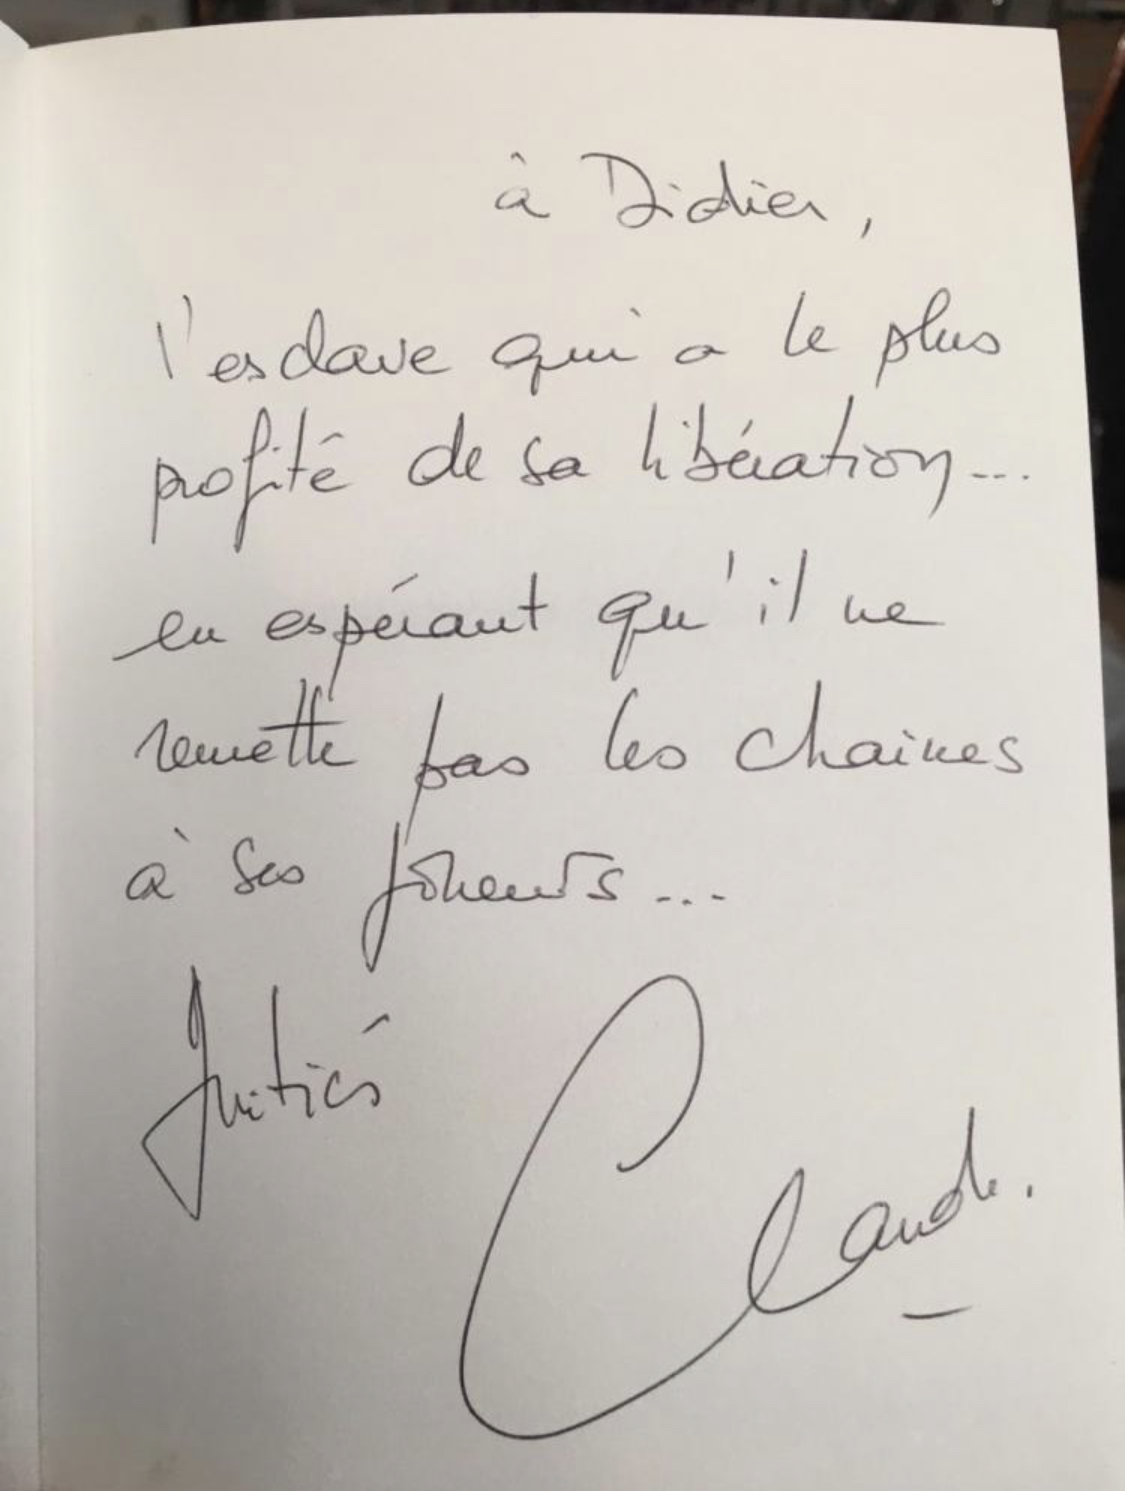 à Didier,
l'esclave qui a le plus
profité de sa libération...
en espérant qu'il ne
remette pas les chaines
à ses joueurs...
Amitiés
Claude.